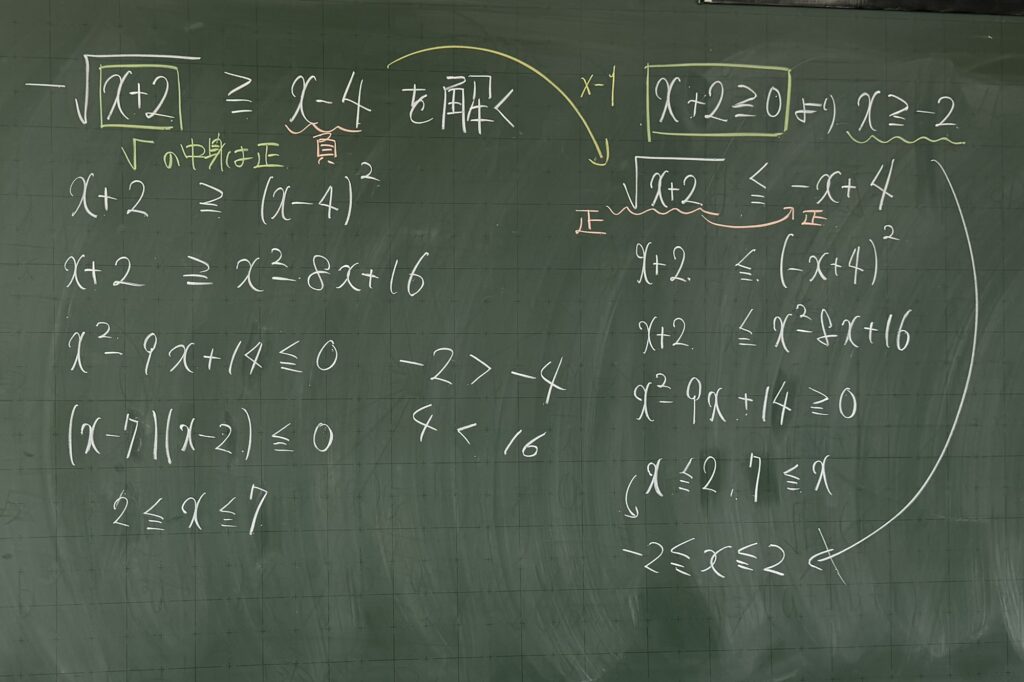 -√x+2 ≧ x-4 を解く
√の中身は正
負
x+2 ≧ (x-4)²
x+2 ≧ x²-8x+16
x²-9x+14≦0
(x-7)(x-2)≦0
2≦x≦7
-2>-4
4<16
x-1
x+2≧0 より x≧-2
√x+2 ≦ -x+4
正 正
x+2 ≦ (-x+4)²
x+2 ≦ x²-8x+16
x²-9x+14≧0
x≦2, 7≦x
-2≦x≦2